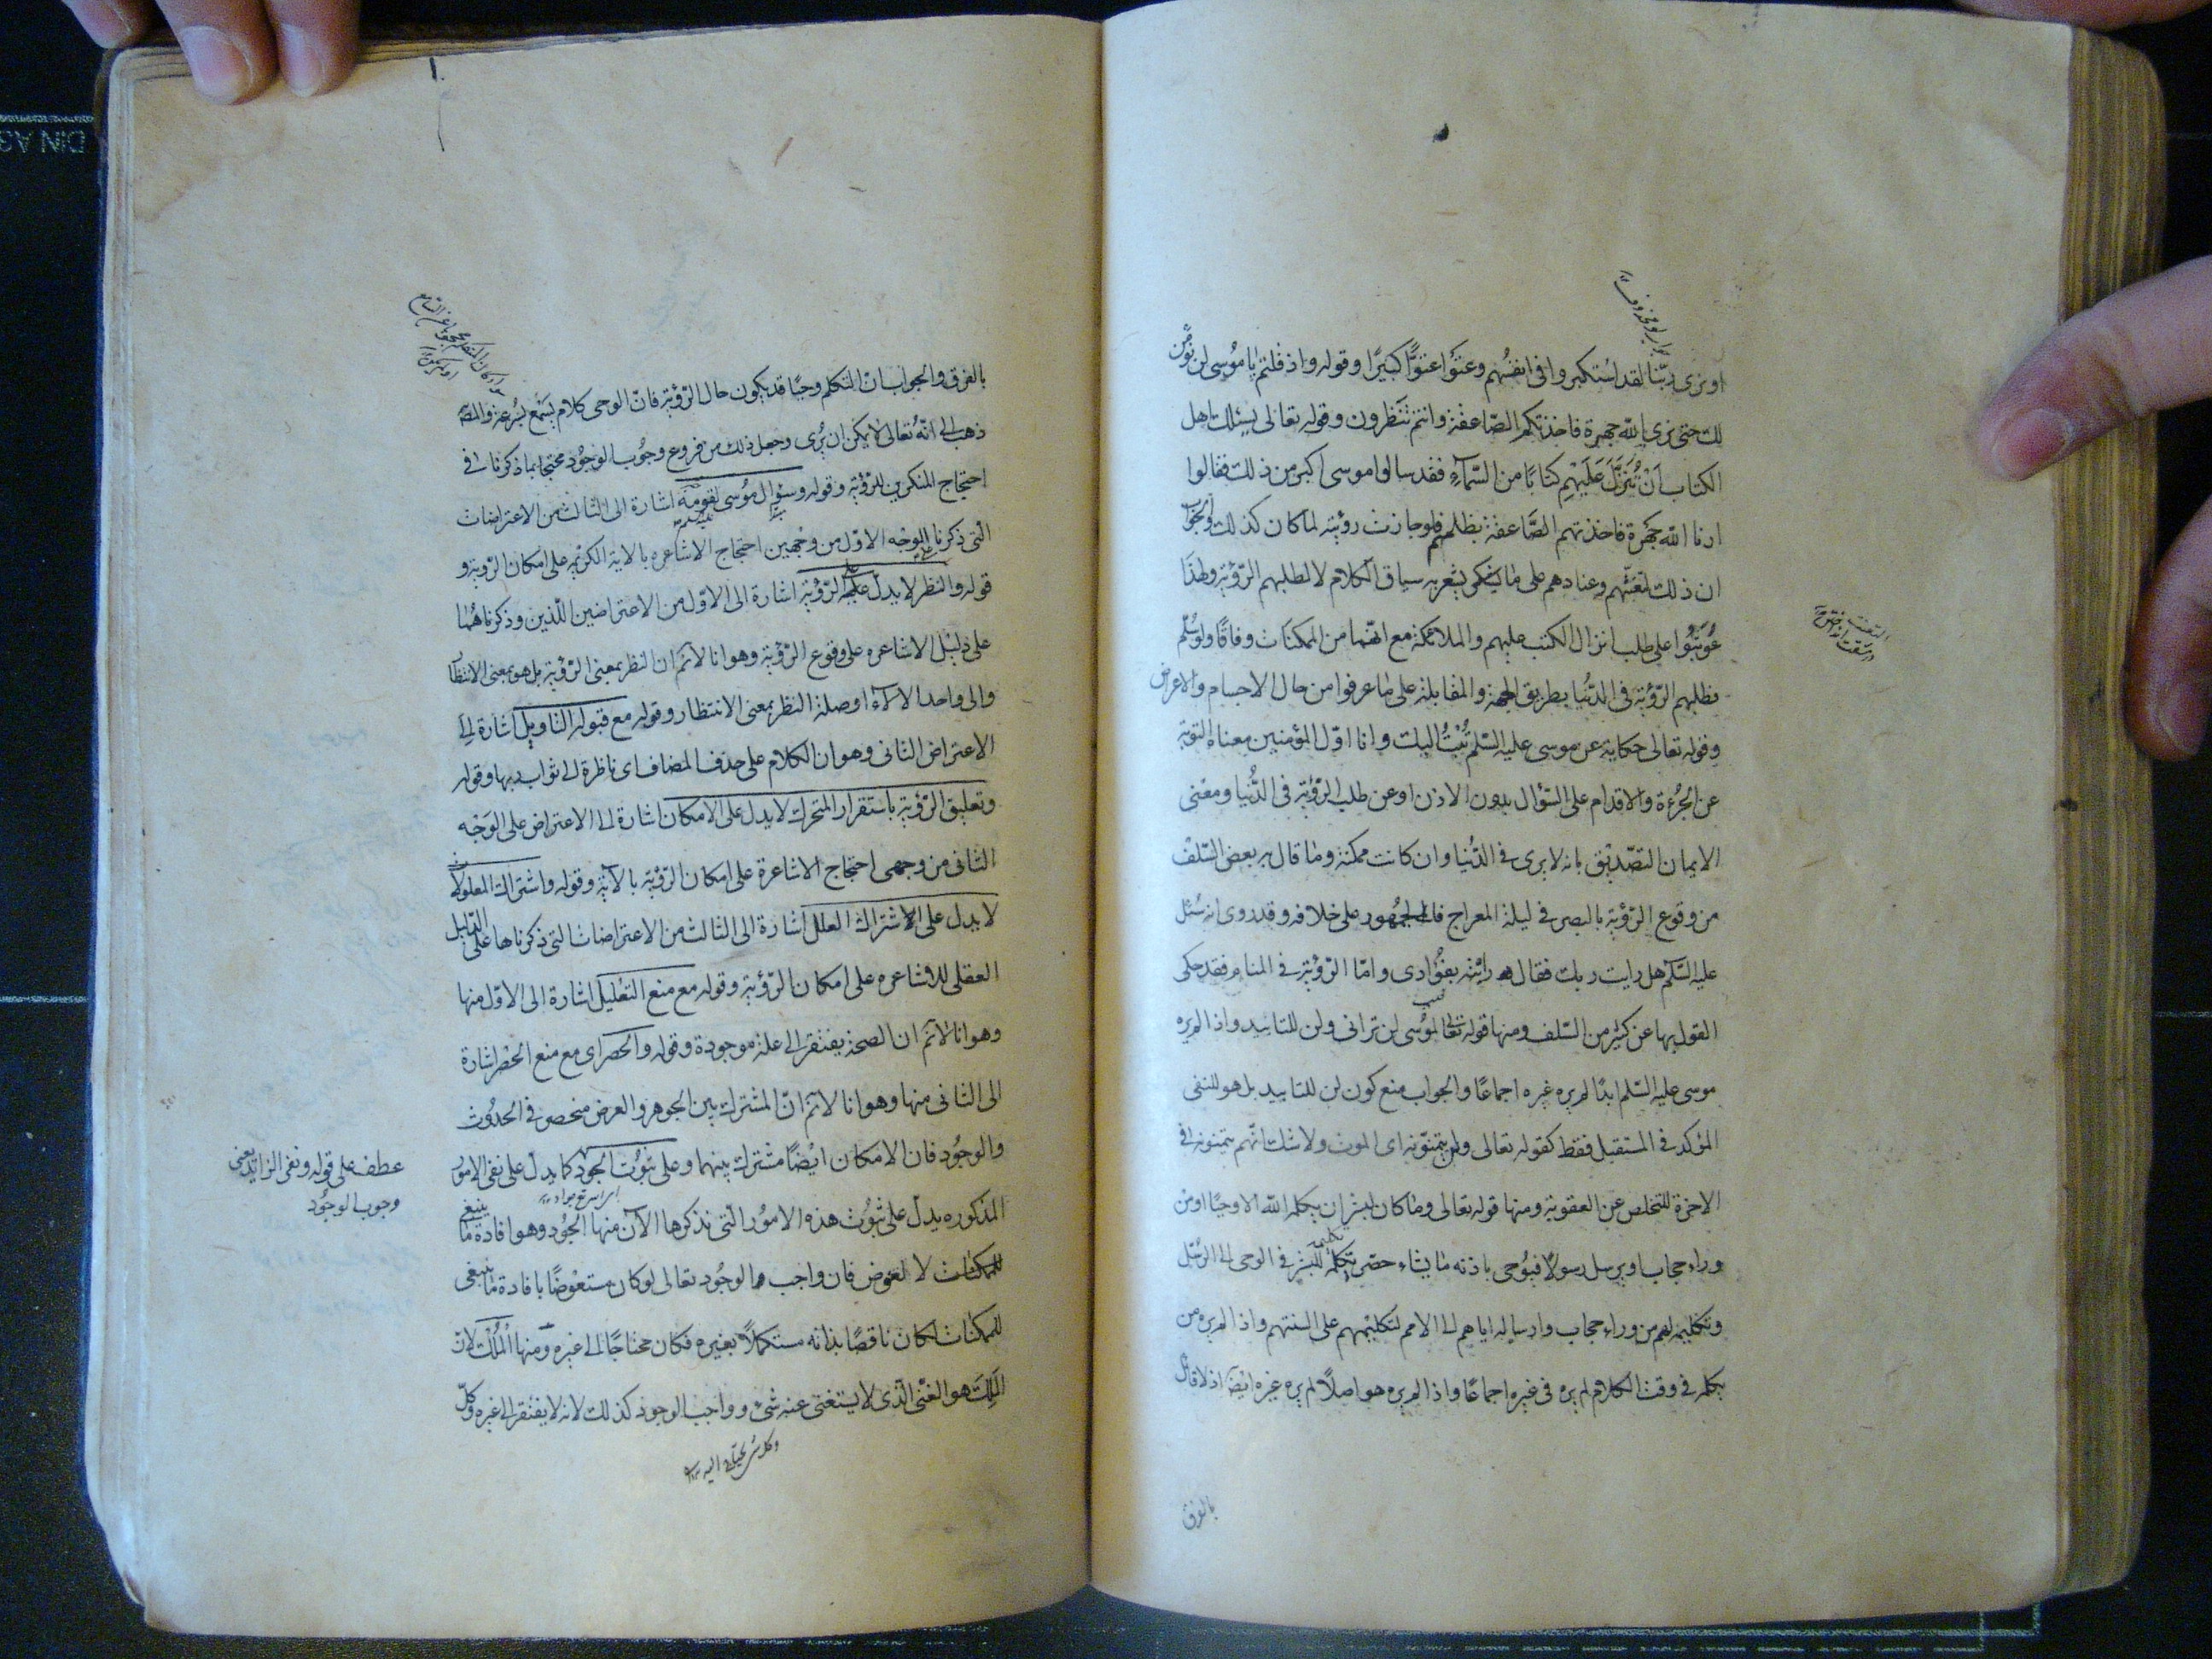 او نرى ربّنا لقد استكبروا فى انفسهم وعتوا عتوّا كبيرًا وقوله واذ قلتم يا موسى لن نؤمن
لك حتى نرى الله جهرة فاخذتكم الصّاعقة وانتم تنظرون وقوله تعالى يسئلك اهل
الكتاب اَنْ تُنَزِّلَ عَلَيْهِم كتابًا من السّمآءِ فقد سالوا موسى اكبر من ذلك فقالوا
ارنا الله جَهْرة فاخذتهم الصَّاعقة بظلمهم فلو جازت رؤيته لما كان كذلك والجواب
ان ذلك لتعنّتهم وعنادهم على ما يشعر به سياق الكلام لا لطلبهم الرّؤية ولهذَا
عُوتِبُوا على طلب انزال الكتب عليهم والملائكة مع انّهما من الممكنات وفاقًا ولو سُلّم
فطلبهم الرّؤية فى الدّنيا بطريق الجهة والمقابلة على ما عرفوا من حال الاجسام والاعراض
وقوله تعالى حكاية عن موسى عليه السّلم تُبْتُ اليك وانا اوّل المؤمنين معناه التوبة
عن الجُرْءة والاقدام على السّؤال بدون الاذن او عن طلب الرّؤية فى الدُّنيا ومعنى
الايمان التصّديق بانه لا يرى فى الدّنيا وان كانت ممكنة وما قال به بعض السّلف
من وقوع الرّؤية بالبصر فى ليلة المعراج فالجمهور على خلافه وقد روى انه سُئل
عليه السّلام هل رايت ربك فقال رايته بفؤادى وامّا الرّؤية فى المنام فقد حكى
القول بها عن كثير من السّلف ومنها قوله تعالى لموُسى لن ترانى ولن للتابيد واذا لم يره
موسى عليه السّلم ابدًا لم يره غيره اجماعًا والجواب منع كون لن للتابيد بل هو للنفى
المؤكد فى المستقبل فقط كقوله تعالى ولن يتمنّونه اى الموت ولا شك انّهم يتمنونه فى
الاخرة للتخلص عن العقوبة ومنها قوله تعالى وما كان لبشر ان يكلمه الله الا وحيًا او من
وراء حجاب او يرسل رسولًا فيوُحى باذنه ما يشاء حصر تكلمه للبشر فى الوحى الى الرسّل
وتكليمه لهم من وراء حجاب وارساله اياهم الى الامم لتكليمهم على السنتهم واذا لم يره من
يكلمه فى وقت الكلام لم يره فى غيره اجماعًا واذا لم يره هو اصلًا لم يره غيره ايضًا اذ لا قائل
بالفرق
بالفرق والجواب انّ التكلم وحيًا قد يكون حال الرّؤية فانّ الوحى كلام يسمع بسُرعة والمصّ
ذهب الى انّه تعالى لا يمكن ان يُرى وجعل ذلك من فروع وجُوب الوجُود محتجا بما ذكرنا فى
احتجاج المنكرين للرّؤية وقوله وسؤال موُسى لقومه اشارة الى الثالث من الاعتراضات
الّتى ذكرنا للوجه الاوّل من وجهين احتجاج الاشاعره بالاية الكريمه على امكان الرّوية و
قوله والنظر لا يدل على الرّؤية اشارة الى الاوّل من الاعتراضين اللّذين وذكرناهُما
على دليل الاشاعره على وقوع الرّؤية وهو انا لا نمّ ان النظر بمعنى الرّؤية بل هو بمعنى الانتظار
والى واحد الآلاء او صلة النظر بمعنى الانتظار وقوله مع قبوله التاويل اشارة الى
الاعتراض الثانى وهو ان الكلام على حذف المضاف اى ناظرة الى ثواب ربها وقوله
وتعليق الرّؤية باستقرار المتحرك لا يدل على الامكان اشارة الى الاعتراض على الوَجْه
الثانى من وجهى احتجاج الاشاعرة على امكان الرّؤية بالآية وقوله واشتراك المعلولات
لا يدل على الاشتراك العلل اشارة الى الثالث من الاعتراضات التى ذكرناها على الدّليل
العقلى للاشاعره على امكان الرّؤية وقوله مع منع التعليل اشارة الى الاوّل منها
وهو انا لا نمّ ان الصحة يفتقر الى علة موجودة وقوله والحصر اى مع منع الحصْر اشارة
الى الثانى منها وهو انا لا نمّ انّ المشترك بين الجوهر والعرض منحصر فى الحدُوث
والوجُود فان الامكان ايضًا مشترك بينهما وعلى ثبُوت الجود كما يدل على نفى الامور
عطف على قوله ونفى الزائد يعنى
وجوب الوجُود
المذكوره يدلّ على ثبُوت هذه الامور الّتى نذكرها الآن منها الجُود وهو افادة ما ينبغى
للممكنات لا لعوض فان واجب الوجُود تعالى لو كان مستعوْضًا بافادة ما ينبغى
للممكنات لكان ناقصًا بذاته مستكملًا بغيره فكان محتاجًا الى غيره ومنها المُلك لانّ
المَلِكَ هو الغنى الّذى لا يستغنى عنه شئ وواجب الوجود كذلك لانه لا يفتقر الى غيره وكلّ
وكل شئ يحتاج اليه